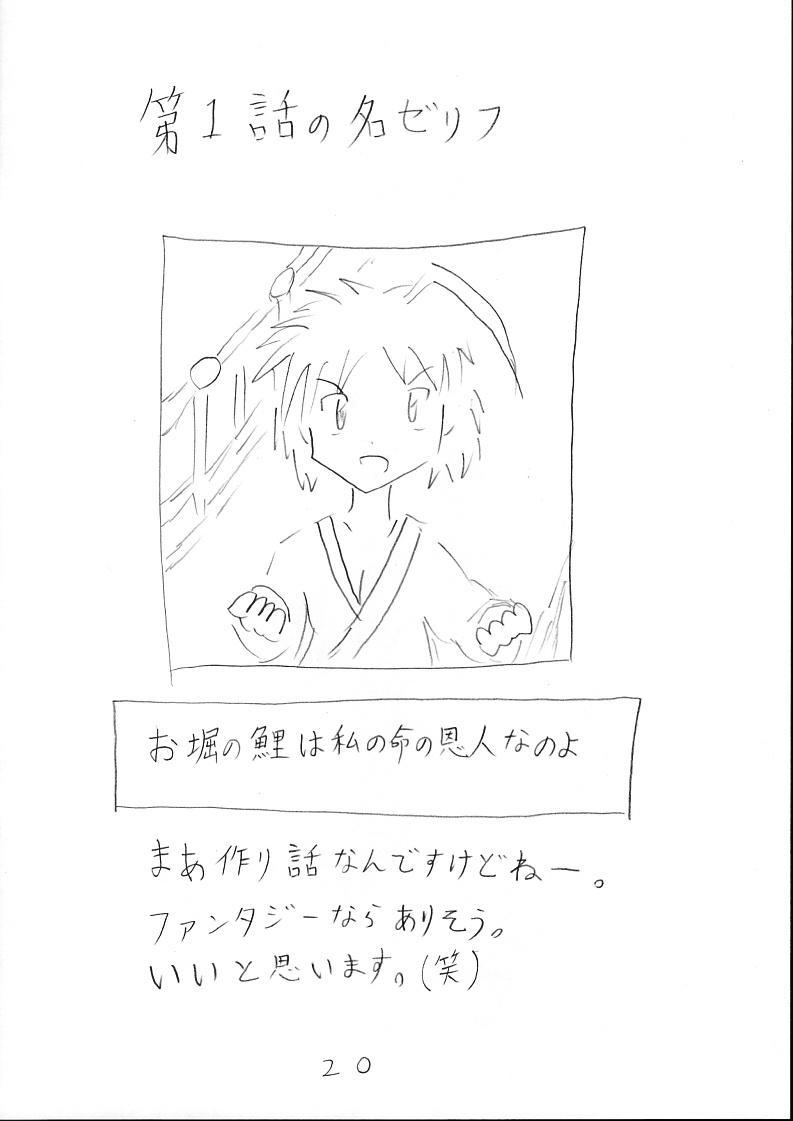 第1話の名ゼリフ
お堀の鯉は私の命の恩人なのよ
まあ作り話なんですけどねー。
ファンタジーならありそう。
いいと思います。(笑)
20